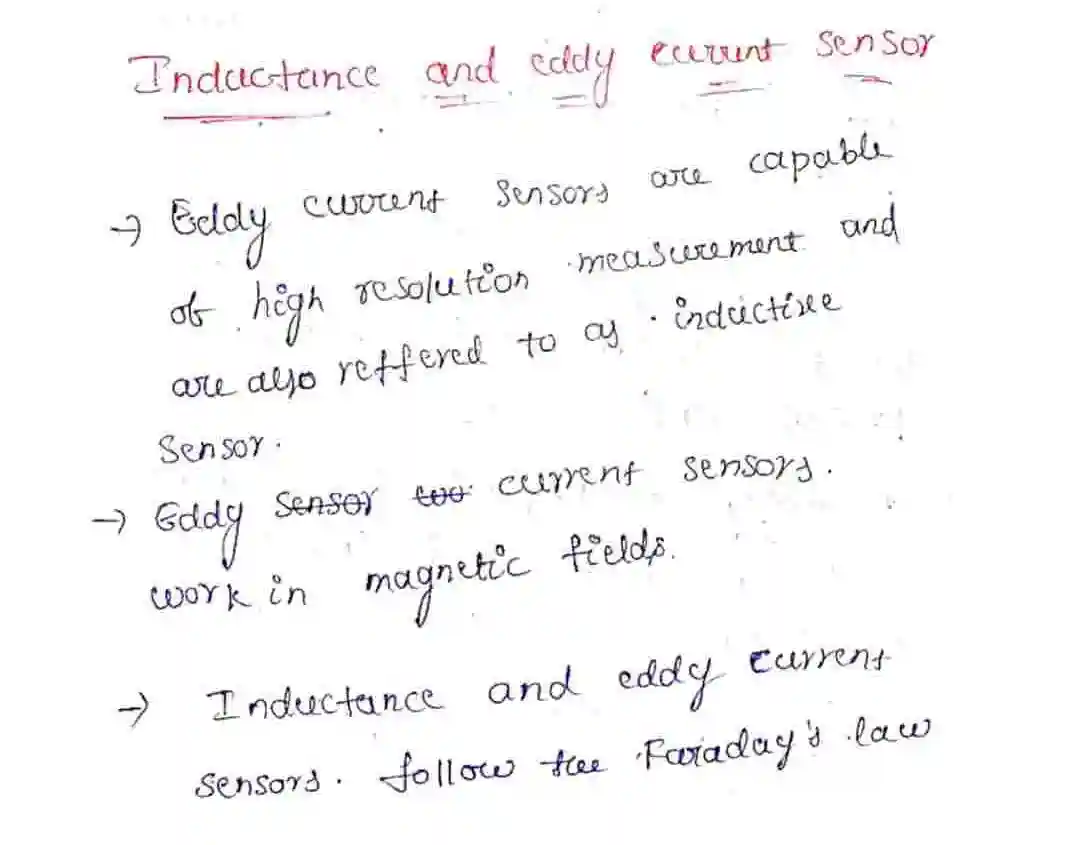 Inductance and eddy current sensor
→ Eddy current sensors are capable
of high resolution measurement and
are also reffered to as inductive
sensor.
→ Eddy sensor two current sensors.
work in magnetic fields.
→ Inductance and eddy current
sensors. follow the Faraday's law